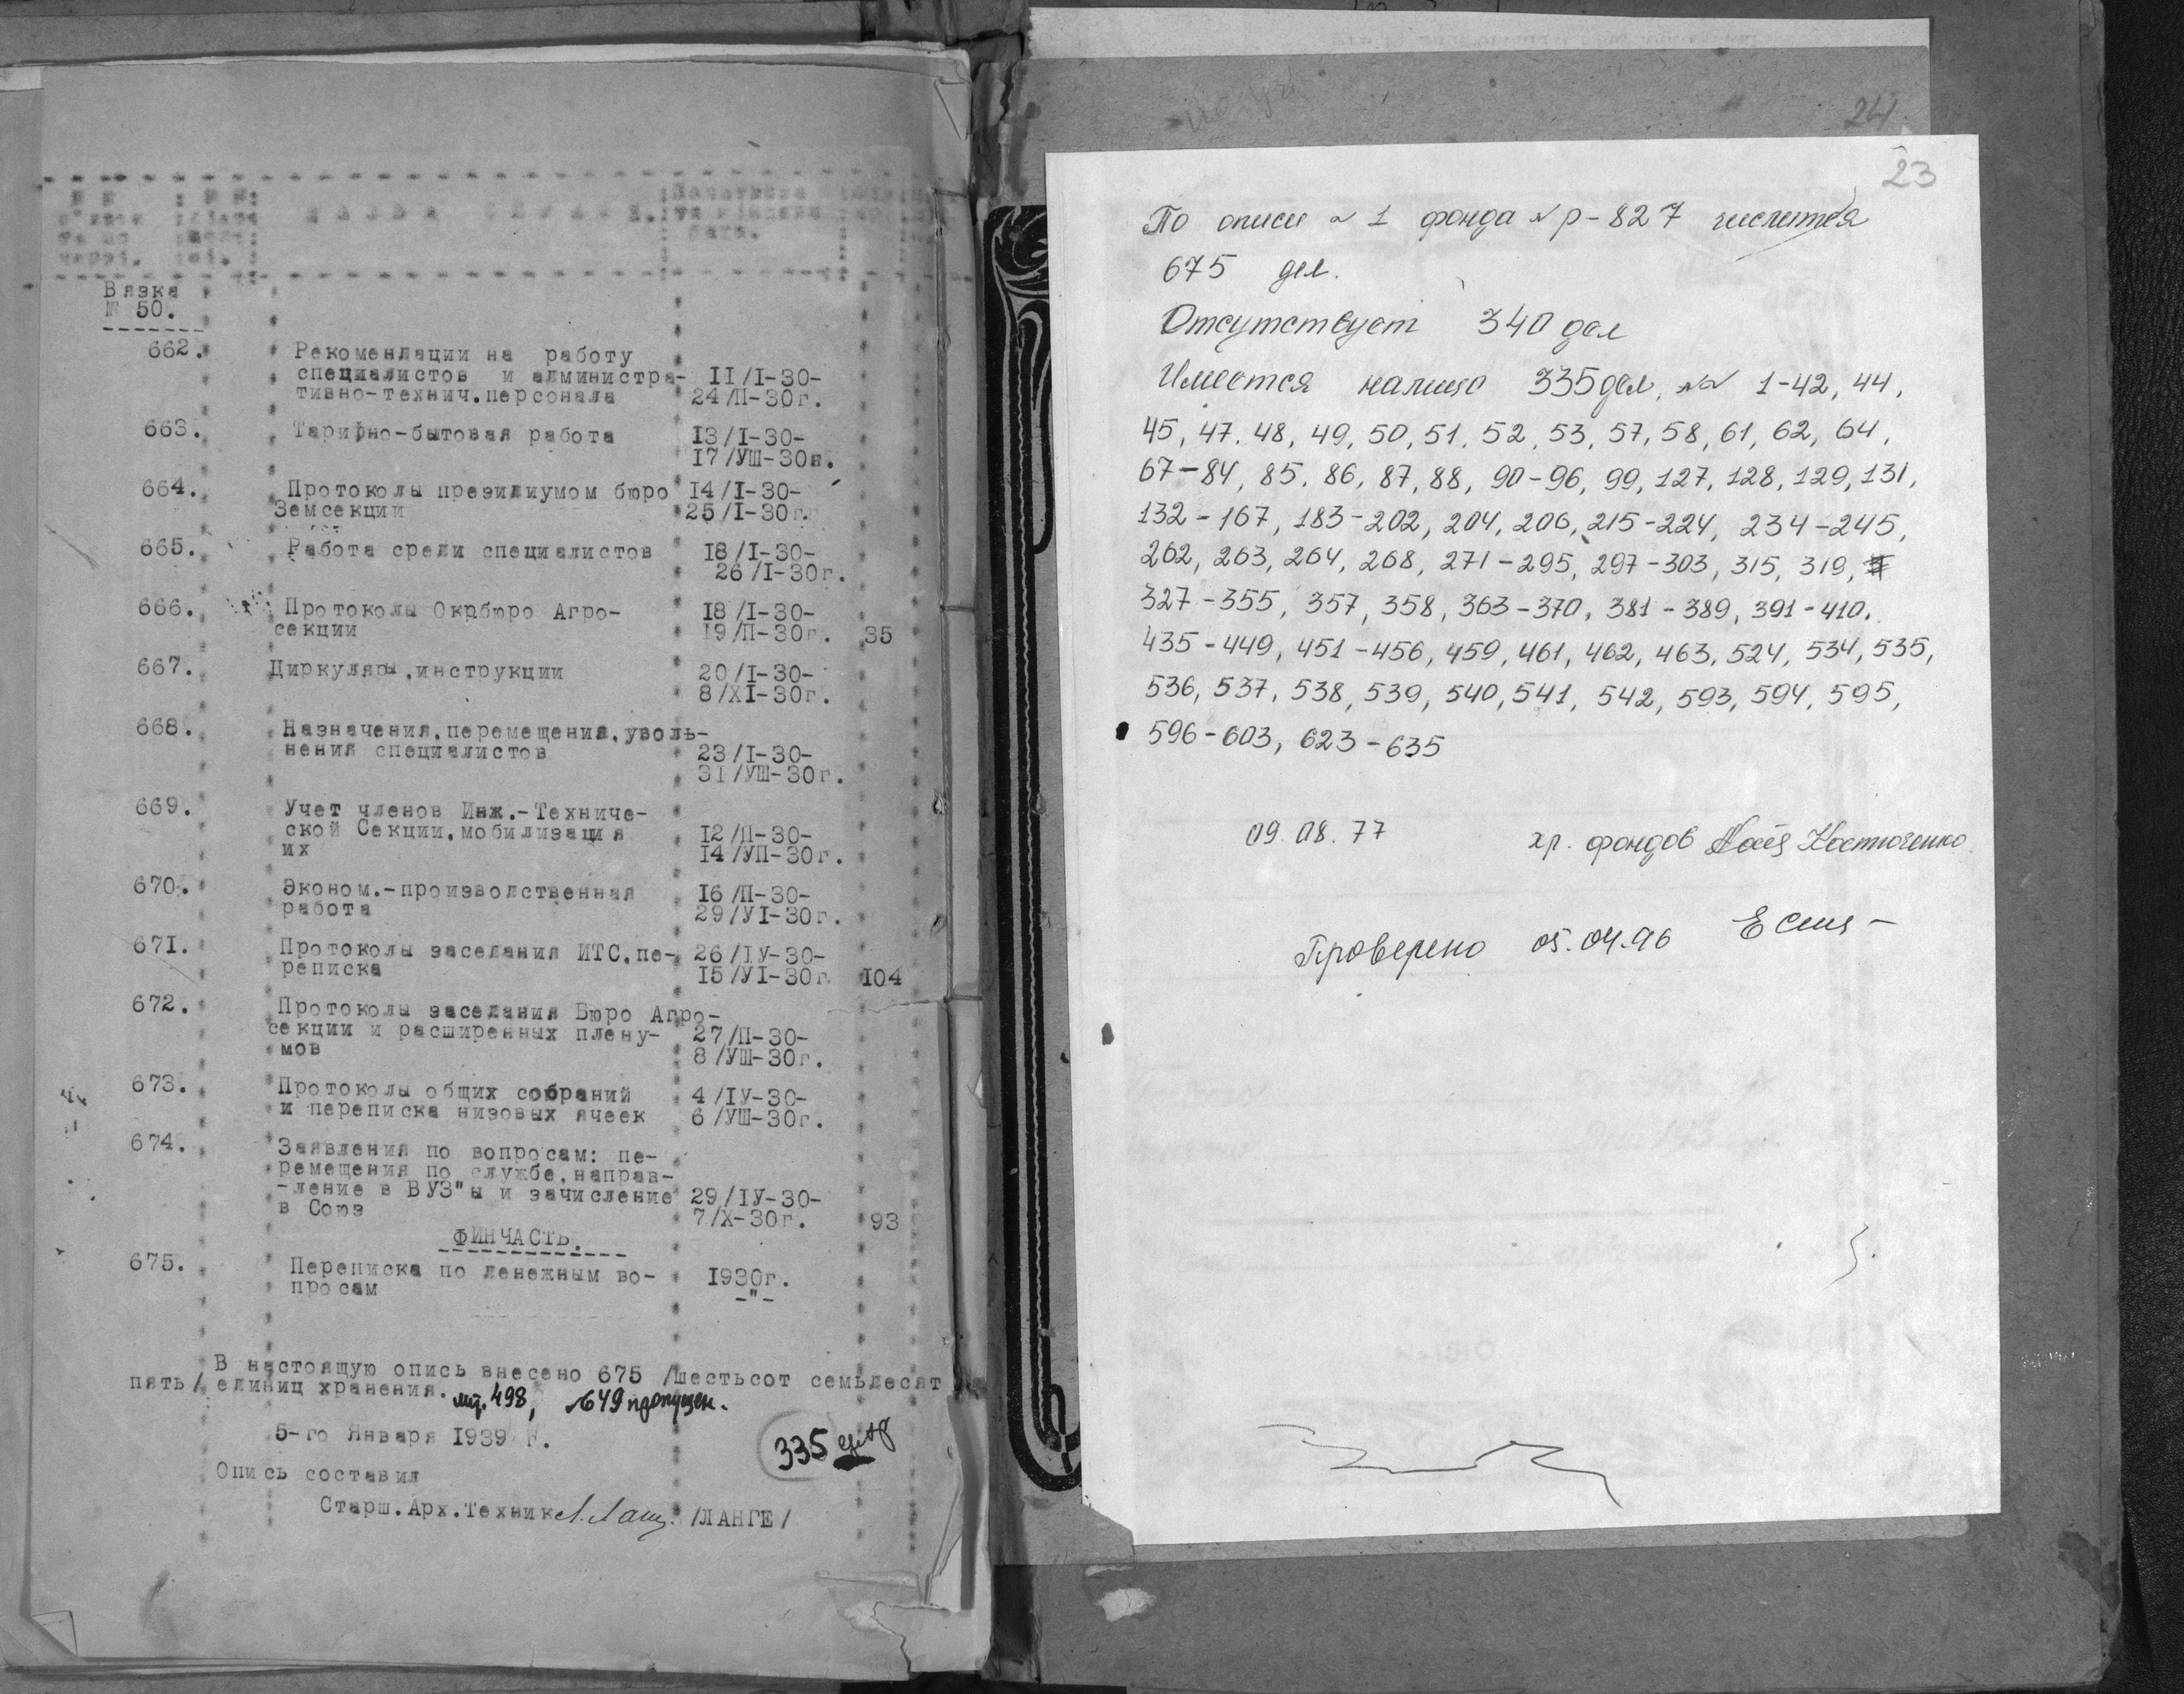 Вязка
№ 50.
662. Рекомендации на работу
специалистов и администра- II/I-30-
тивно-технич.персонала 24/П-30г.
663. Тарифно-бытовая работа 13/I-30-
17/УШ-30г.
664. Протоколы президиумом бюро 14/I-30-
Земсекции 25/I-30г.
665. Работа среди специалистов 18/I-30-
26/I-30г.
666. Протоколы Окрбюро Агро- 18/I-30-
секции 19/П-30г. 35
667. Циркуляры,инструкции 20/I-30-
8/XI-30г.
668. Назначения,перемещения,уволь-
нения специалистов 23/I-30-
31/УШ-30г.
669. Учет членов Инж.-Техниче-
ской Секции,мобилизация 12/П-30-
их 14/УП-30г.
670. Эконом.-производственная 16/П-30-
работа 29/УI-30г.
671. Протоколы заседания ИТС,пе- 26/IУ-30-
реписка 15/УI-30г. 104
672. Протоколы заседания Бюро Агро-
секции и расширенных плену- 27/П-30-
мов 8/УШ-30г.
673. Протоколы общих собраний 4/IУ-30-
и переписка низовых ячеек 6/УШ-30г.
674. Заявления по вопросам: пе-
ремещения по службе,направ-
-ление в ВУЗ"ы и зачисление 29/IУ-30-
в Союз 7/X-30г. 93
ФИНЧАСТЬ.
675. Переписка по денежным во- 1930г.
просам -"-
В настоящую опись внесено 675 /шестьсот семьдесят
пять/ единиц хранения. лит. 498, №649 пропущен.
5-го Января 1939 г.
335
Опись составил
Старш.Арх.Техник /ЛАНГЕ/
24
23
По описи № 1 фонда № р-827 числится
675 дел.
Отсутствует 340 дел
Имеются налицо 335 дел, №№ 1-42, 44,
45, 47. 48, 49, 50, 51, 52, 53, 57, 58, 61, 62, 64,
67-84, 85, 86, 87, 88, 90-96, 99, 127, 128, 129, 131,
132-167, 183-202, 204, 206, 215-224, 234-245,
262, 263, 264, 268, 271-295, 297-303, 315, 319,
327-355, 357, 358, 363-370, 381-389, 391-410.
435-449, 451-456, 459, 461, 462, 463, 524, 534, 535,
536, 537, 538, 539, 540, 541, 542, 593, 594, 595,
596-603, 623-635
09.08.77 хр. фондов Костюченко
Проверено 05.04.96